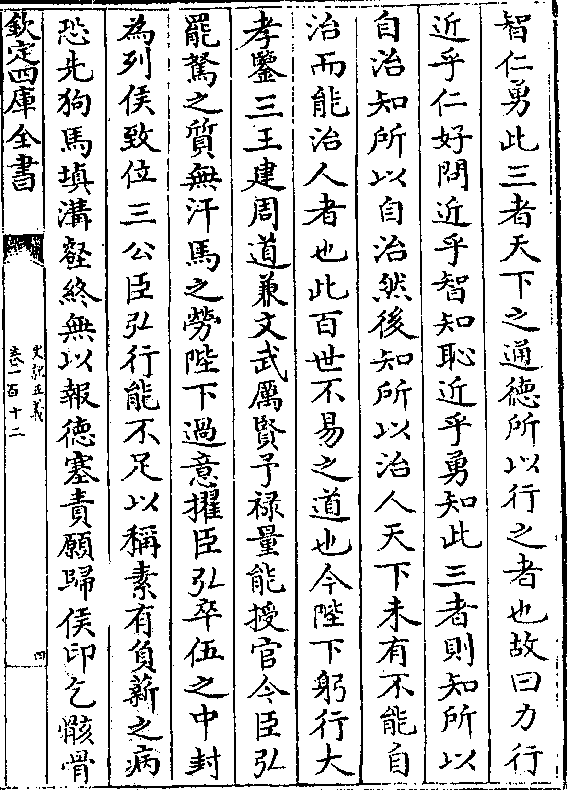 智仁勇此三者天下之通德所以行之者也故曰力行
近乎仁好問近乎智知恥近乎勇知此三者則知所以
自治知所以自治然後知所以治人天下未有不能自
治而能治人者也此百世不易之道也今陛下躬行大
孝鑒三王建周道兼文武厲賢予祿量能授官今臣弘
罷駑之質無汗馬之勞陛下過意擢臣弘卒伍之中封
為列侯致位三公臣弘行能不足以稱素有負薪之病
恐先狗馬填溝壑終無以報德塞責願歸侯印乞骸骨
欽定四庫全書
史記正義
卷一百十二
四